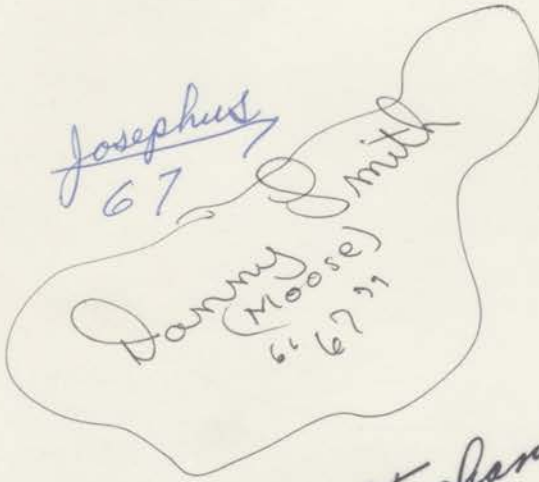 Josephus
67
Danny Smith
(Moose)
"67"